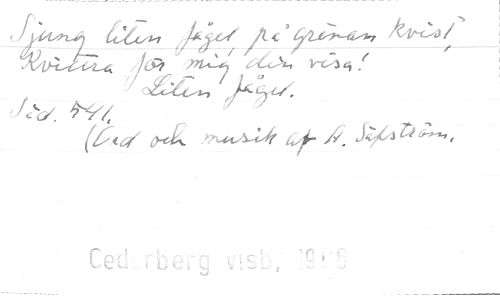 Sjung liten fågel på grönan kvist,
Kvittra för mig din visa!
Liten fågel.
Sid. 541.
(Ord och musik af A. Säfström.
Cederberg visb, 19